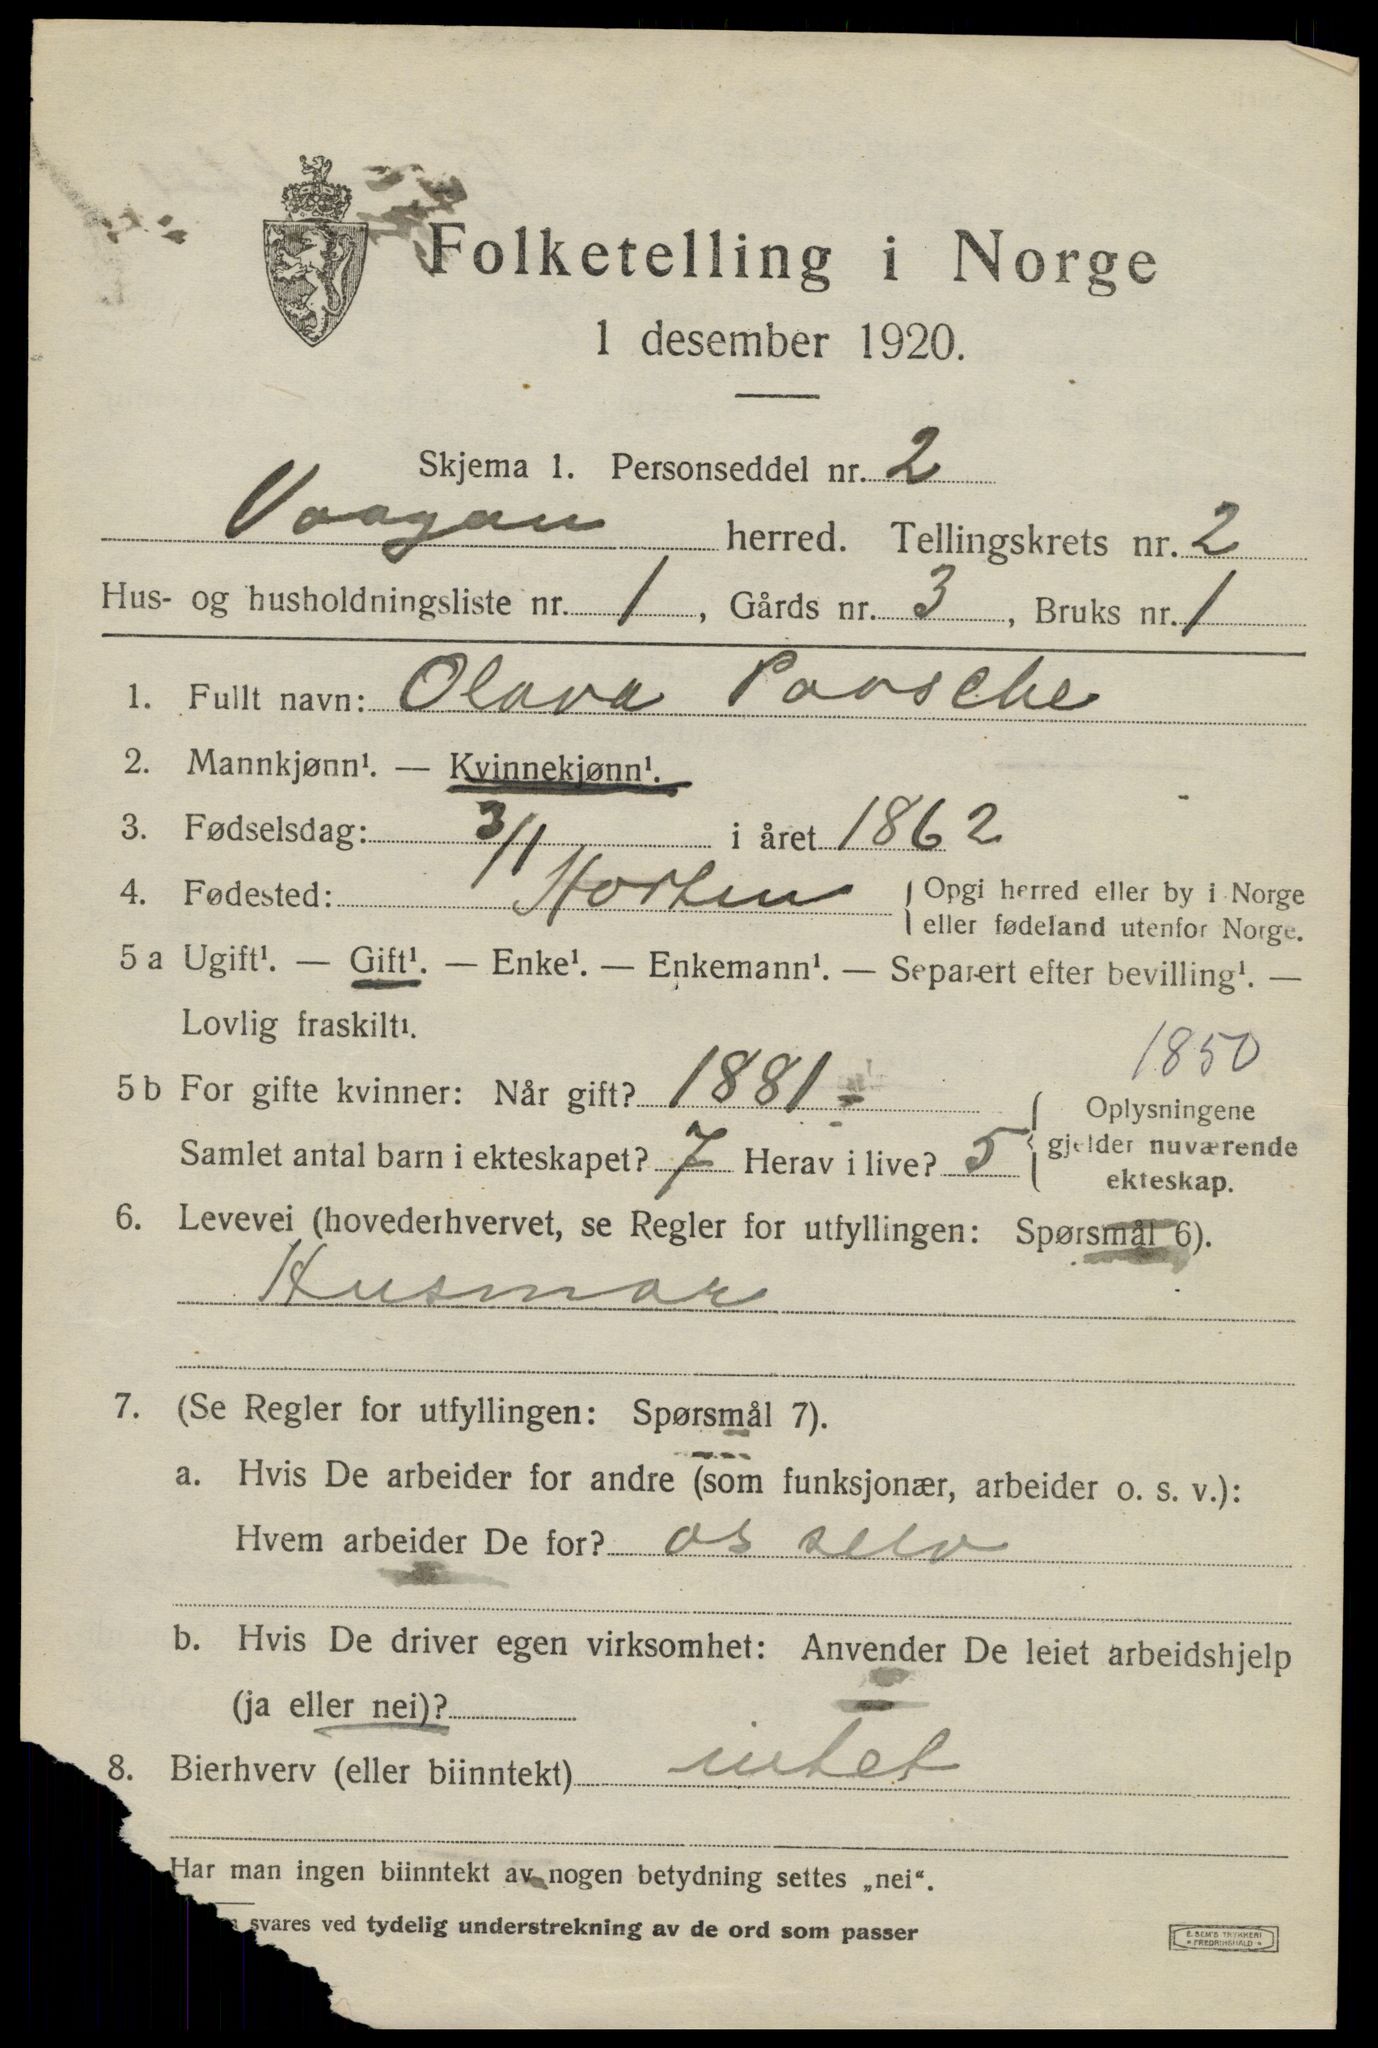 Folketelling i Norge
1 desember 1920.
Skjema 1. Personseddel nr. 2
Vaagan herred. Tellingskrets nr. 2
Hus- og husholdningsliste nr. 1, Gårds nr. 3, Bruks nr. 1
1. Fullt navn: Olava Paasche
2. Mannkjønn¹. — Kvinnekjønn¹.
3. Fødselsdag: 3/11 i året 1862
4. Fødested: Horten { Opgi herred eller by i Norge
eller fødeland utenfor Norge.
5 a Ugift¹. — Gift¹. — Enke¹. — Enkemann¹. — Separert efter bevilling¹. —
Lovlig fraskilt¹.
1850
5 b For gifte kvinner: Når gift? 1881
Samlet antal barn i ekteskapet? 7 Herav i live? 5 { Oplysningene
gjelder nuværende
ekteskap.
6. Levevei (hovederhvervet, se Regler for utfyllingen: Spørsmål 6).
Husmor
7. (Se Regler for utfyllingen: Spørsmål 7).
a. Hvis De arbeider for andre (som funksjonær, arbeider o. s. v.):
Hvem arbeider De for? os selv
b. Hvis De driver egen virksomhet: Anvender De leiet arbeidshjelp
(ja eller nei)?
8. Bierhverv (eller biinntekt) intet
Har man ingen biinntekt av nogen betydning settes „nei“.
svares ved tydelig understrekning av de ord som passer
E. SEM'S TRYKKERI
FREDRIKSHALD